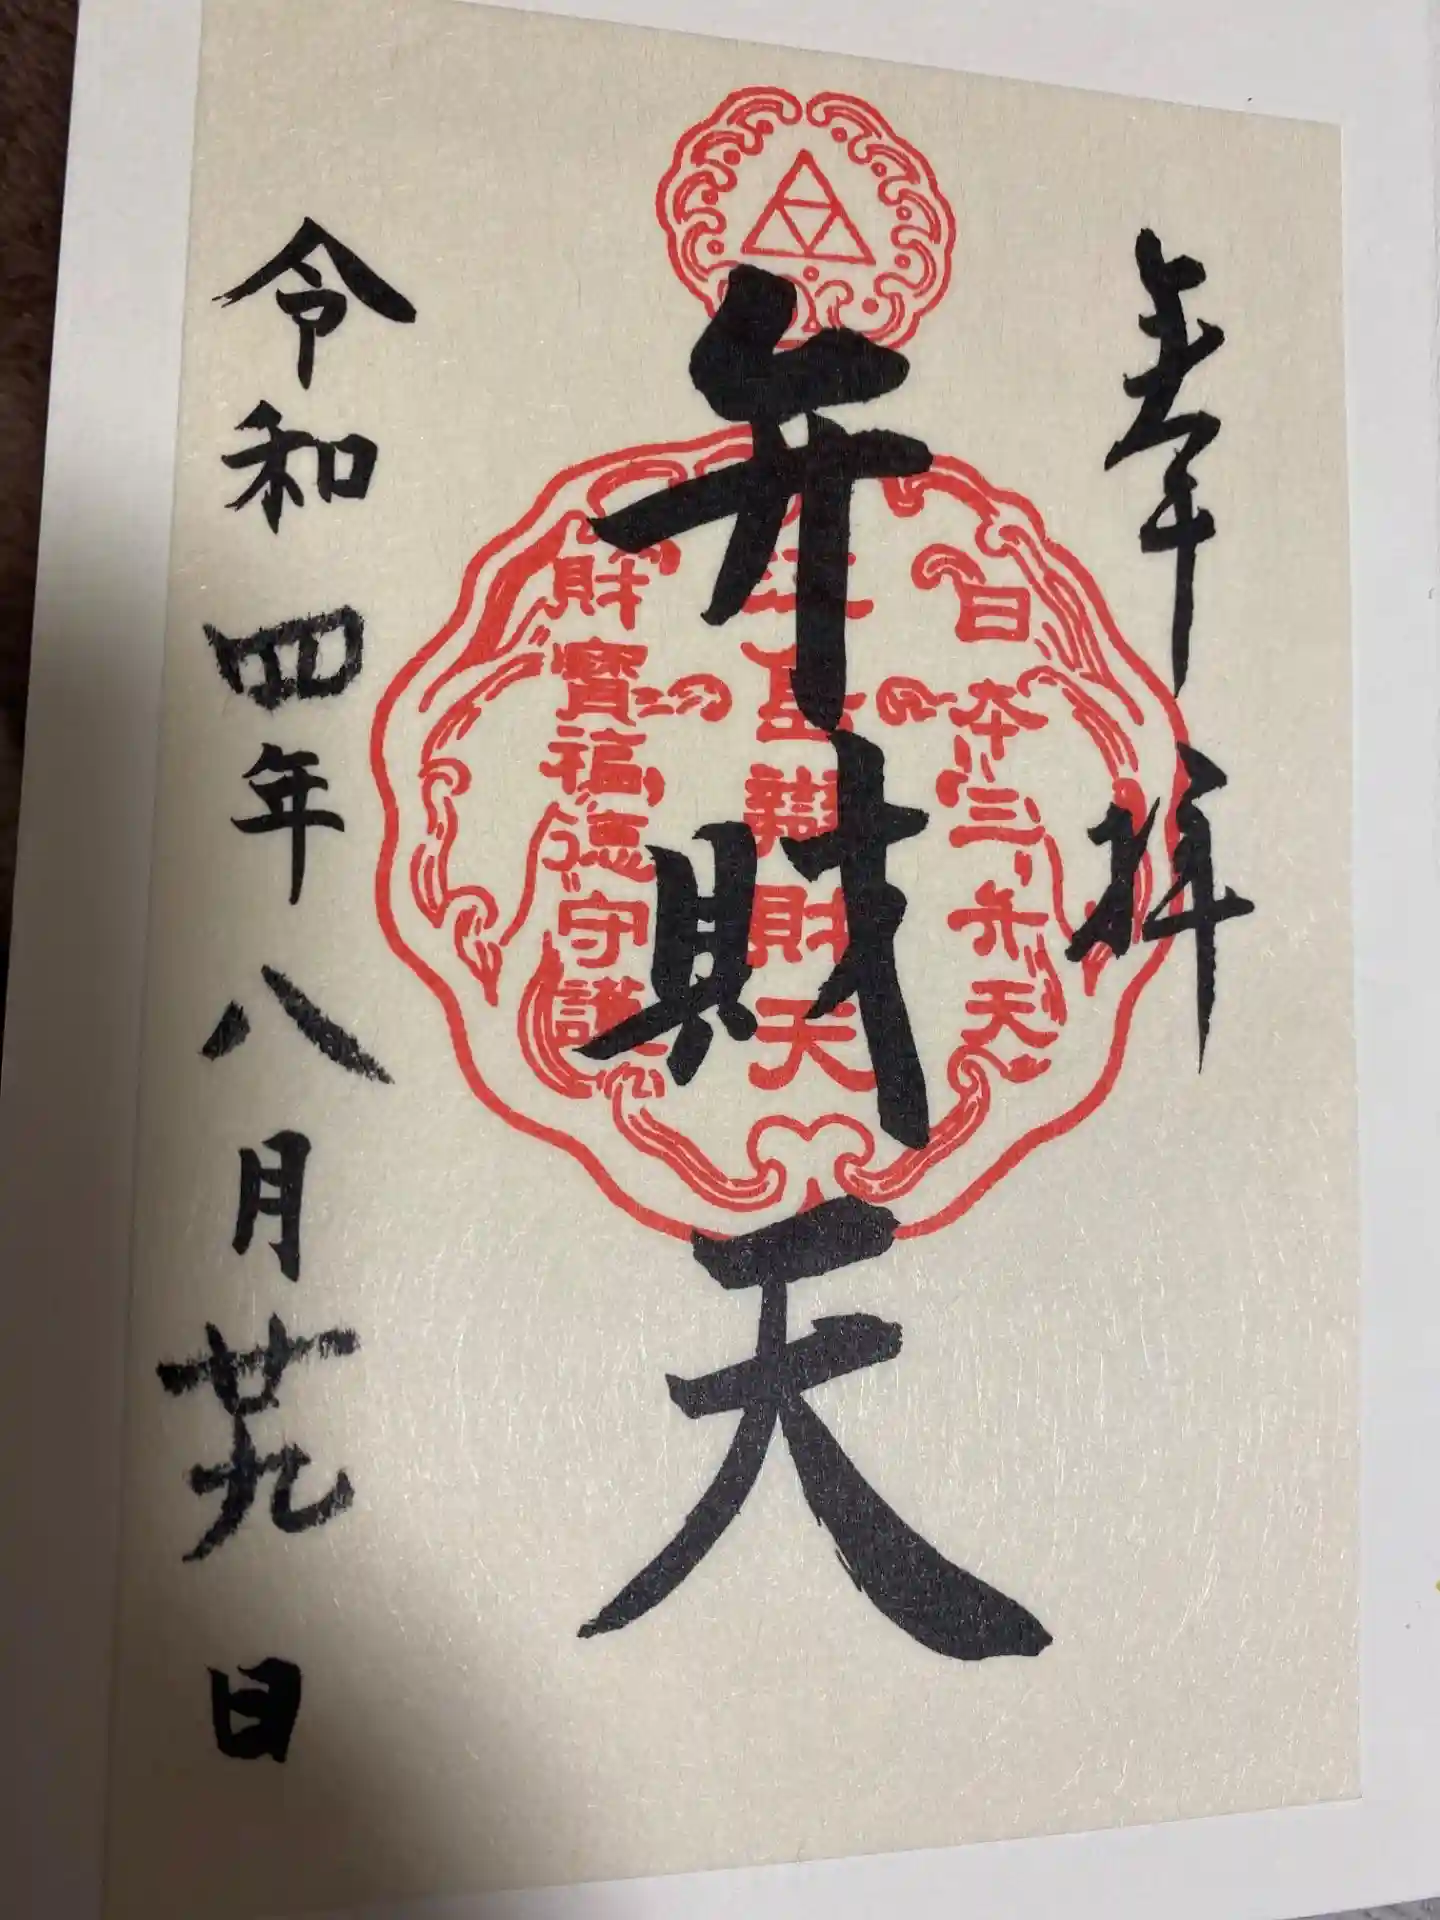 奉拝
弁財天
日本三弁天
江島辯財天
財寶福徳守護
令和四年八月廿九日